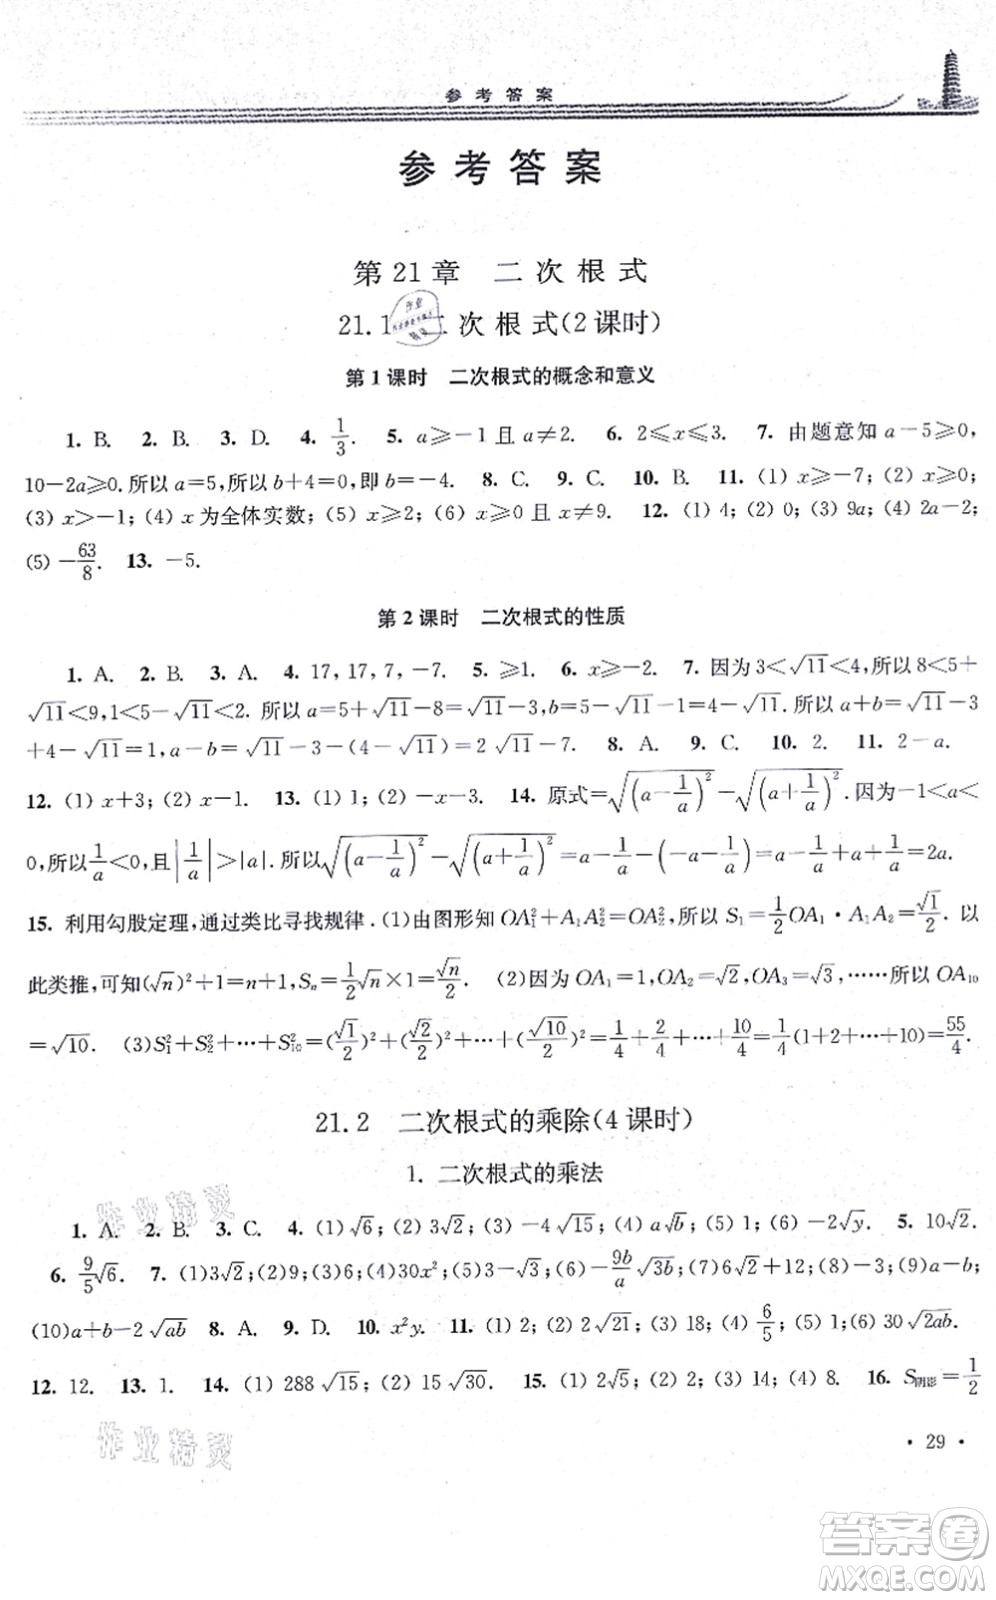 参考答案
参 考 答 案
第 21 章　二 次 根 式
21.1　二 次 根 式(2 课时)
第 1 课时　二次根式的概念和意义
1. B.　2. B.　3. D.　4. 1/3.　5. a⩾−1 且 a≠2.　6. 2⩽x⩽3.　7. 由题意知 a−5⩾0,
10−2a⩾0.所以 a=5,所以 b+4=0,即 b=−4.　8. C.　9. C.　10. B.　11. (1) x⩾−7; (2) x⩾0;
(3) x>−1; (4) x 为全体实数; (5) x⩾2; (6) x⩾0 且 x≠9.　12. (1) 4; (2) 0; (3) 9a; (4) 2a−2;
(5) −63/8.　13. −5.
第 2 课时　二次根式的性质
1. A.　2. B.　3. A.　4. 17, 17, 7, −7.　5. ⩾1.　6. x⩾−2.　7. 因为 3<√11<4,所以 8<5+
√11<9,1<5−√11<2. 所以 a=5+√11−8=√11−3,b=5−√11−1=4−√11.所以 a+b=√11−3
+4−√11=1,a−b=√11−3−(4−√11)=2√11−7.　8. A.　9. C.　10. 2.　11. 2−a.
12. (1) x+3; (2) x−1.　13. (1) 1; (2) −x−3.　14. 原式=√(a−1/a)²−√(a+1/a)².因为−1<a<
0,所以1/a<0,且|1/a|>|a|.所以√(a−1/a)²−√(a+1/a)²=a−1/a+a+1/a=2a.
15. 利用勾股定理,通过类比寻找规律.(1)由图形知 OA₁²+A₁A₂²=OA₂²,所以 S₁=1/2 OA₁·A₁A₂=√1/2. 以
此类推,可知(√n)²+1=n+1,Sₙ=1/2√n×1=√n/2.　(2)因为 OA₁=1,OA₂=√2,OA₃=√3,……所以 OA₁₀
=√10.　(3)S₁²+S₂²+…+S₁₀²=(√1/2)²+(√2/2)²+…+(√10/2)²=1/4+2/4+…+10/4=1/4(1+2+…+10)=55/4.
21.2　二次根式的乘除(4 课时)
1. 二次根式的乘法
1. A.　2. B.　3. C.　4. (1) √6; (2) 3√2; (3) −4√15; (4) a√b; (5) 1; (6) −2√y.　5. 10√2.
6. 9/5√6.　7. (1)3√2;(2)9;(3)6;(4)30x²;(5)3−√3;(6)−9b/a√3b;(7)6√2+12;(8)−3;(9)a−b;
(10)a+b−2√ab　8. A.　9. D.　10. x²y.　11. (1) 2; (2) 2√21; (3) 18; (4) 6/5; (5) 1; (6) 30√2ab.
12. 12.　13. 1.　14. (1) 288√15; (2) 15√30.　15. (1) 2√5; (2) 2√2; (3) 14; (4) 8.　16. S阴影=1/2
· 29 ·
作业精灵
作业精灵
答案卷
MXQE.COM